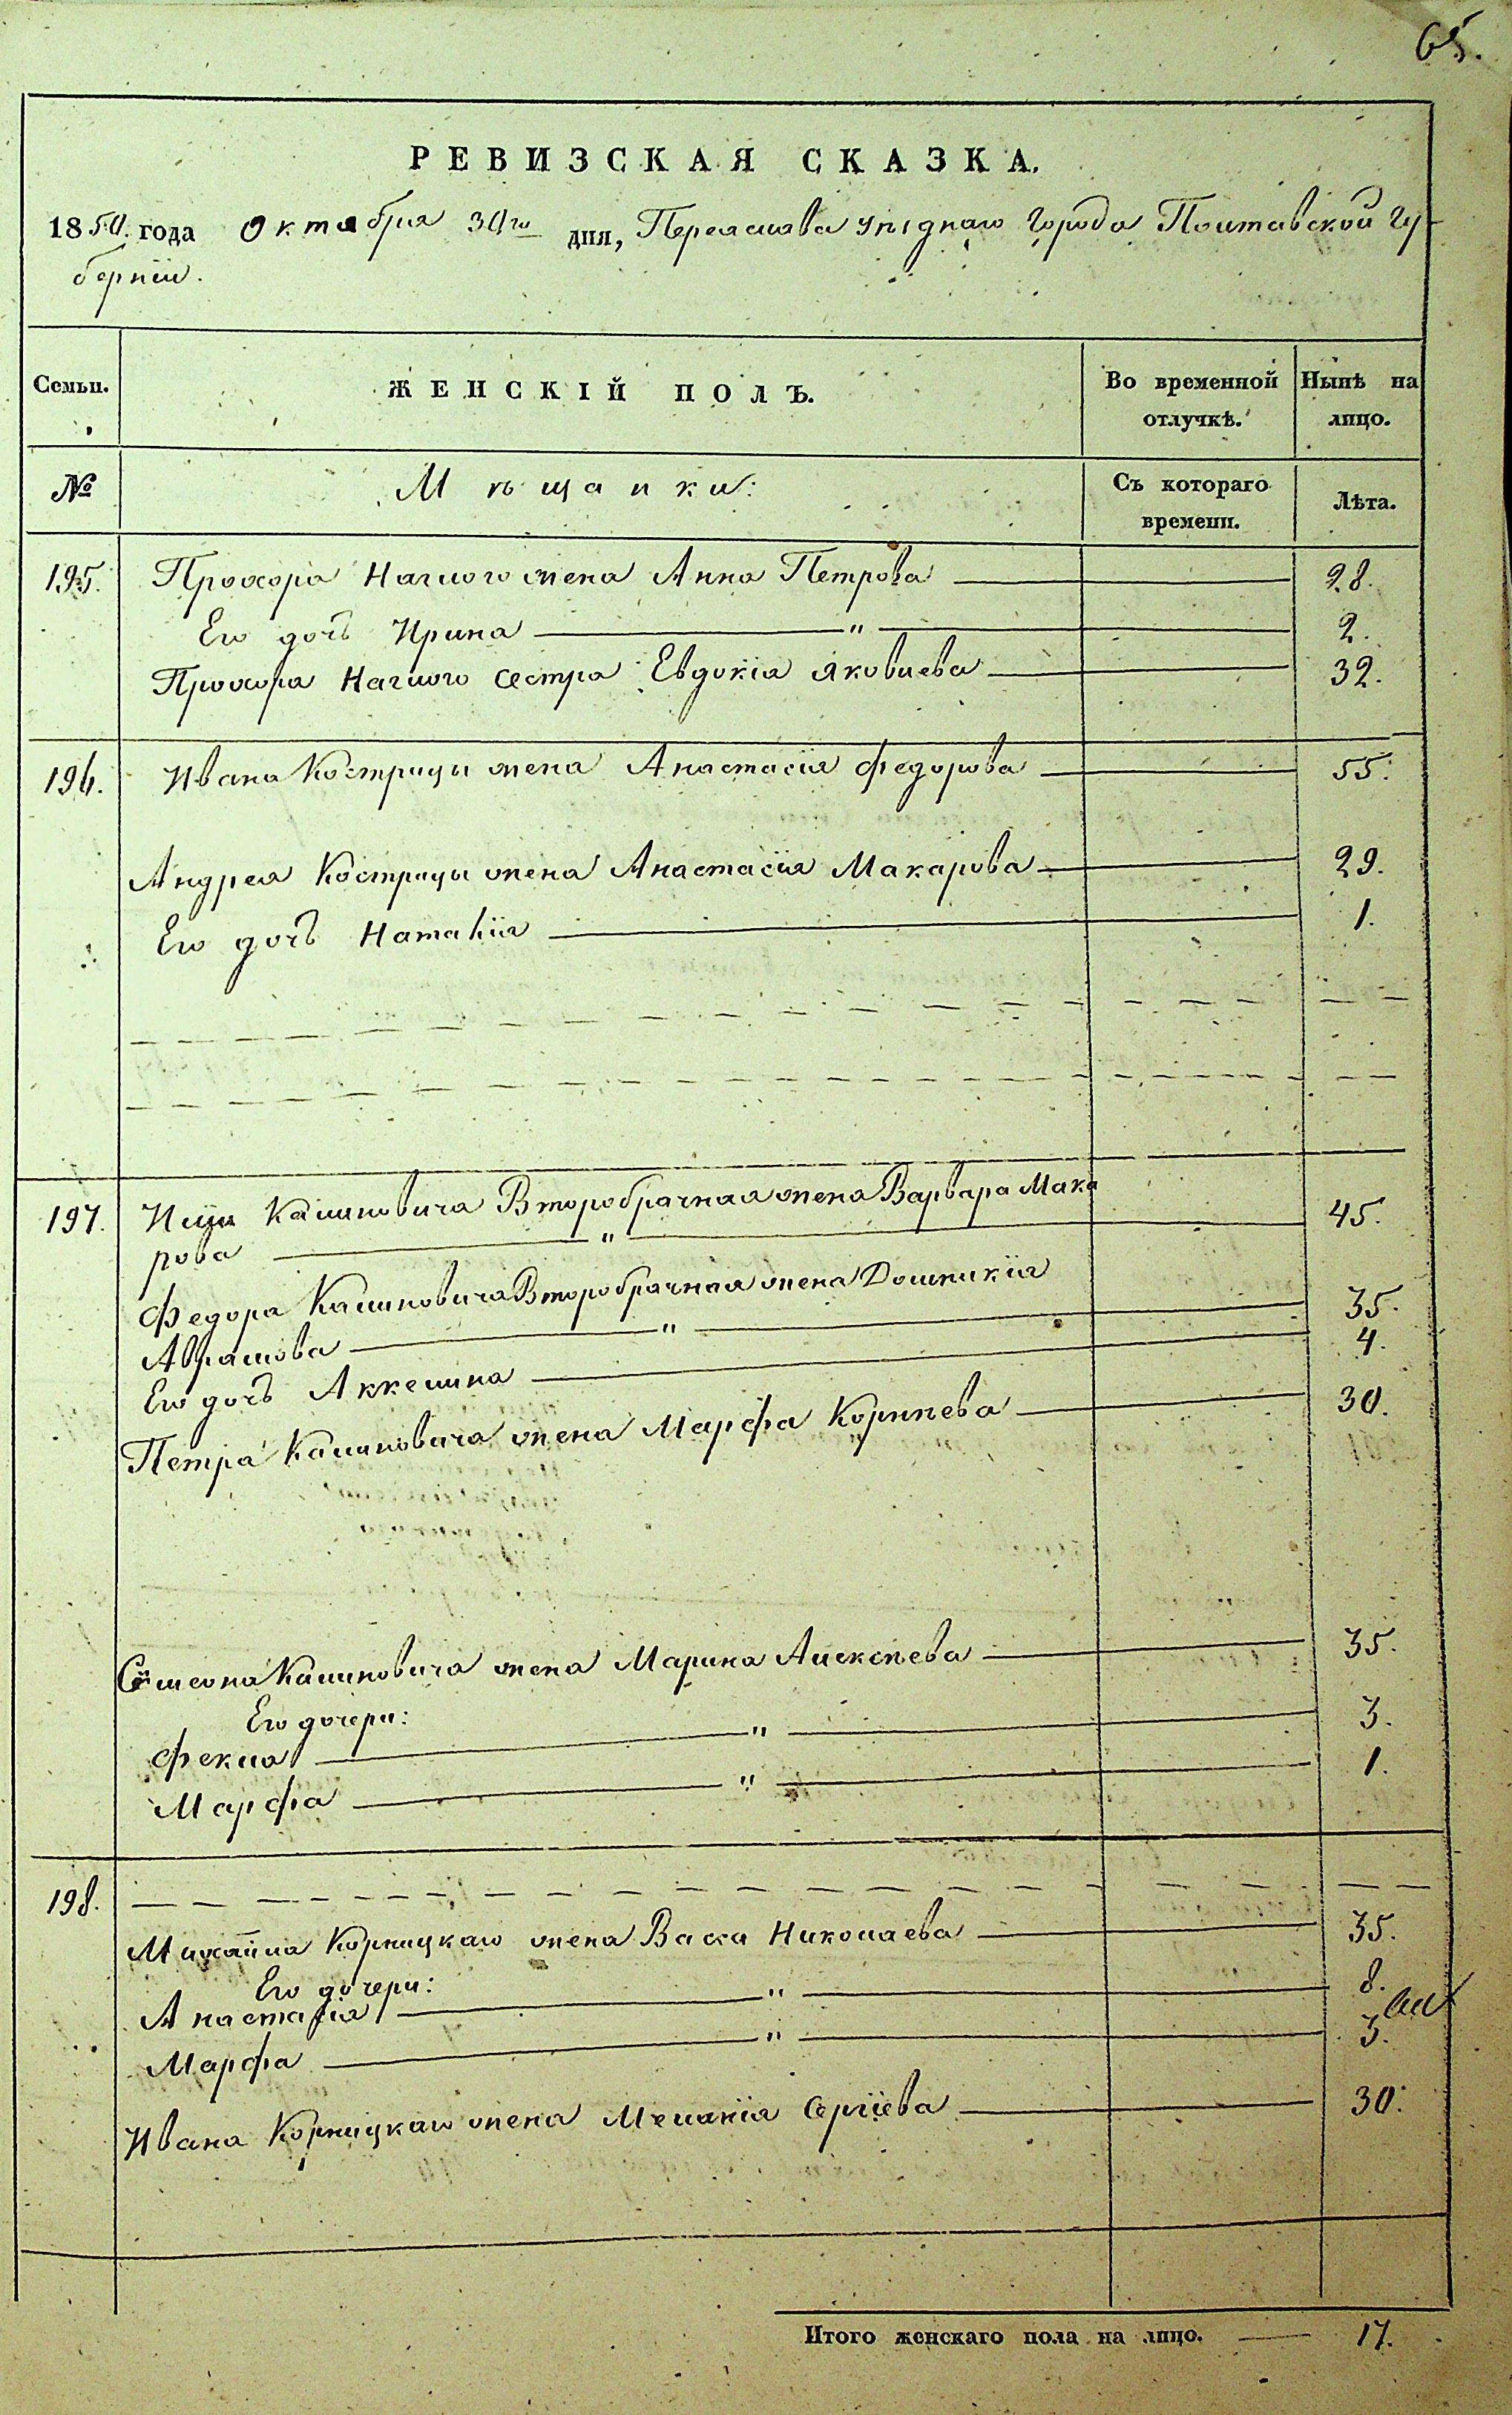 65.
РЕВИЗСКАЯ СКАЗКА.
1850. года Октября 30го дня, Переяслава уѣзднаго города Полтавской Гу-
берніи.
Семьи.
ЖЕНСКІЙ ПОЛЪ.
Во временной отлучкѣ.
Нынѣ на лицо.
№
Мѣщанки:
Съ котораго времени.
Лѣта.
195. Прохора Наглого жена Анна Петрова 28.
Его дочь Ирина " 2.
Прохора Наглого сестра Евдокія Яковлева 32.
196. Ивана Кострицы жена Анастасія Федорова 55.
Андрея Кострицы жена Анастасія Макарова 29.
Его дочь Наталія 1.
197. Калиновича Второбрачная жена Варвара Мака
рова " 45.
Федора Калиновича Второбрачная жена Домникія
Абрамова " 35.
Его дочь Аккелина 4.
Петра Калиновича жена Марфа Корнѣева 30.
Семеона Калиновича жена Марина Алексѣева 35.
Его дочери:
Фекла " 3.
Марфа " 1.
198.
Михайла Корницкаго жена Васса Николаева 35.
Его дочери:
Анастасія " 8.
Марфа " 3.
Ивана Корницкаго жена Меланія Сергіева 30.
Итого женскаго пола на лицо. 17.